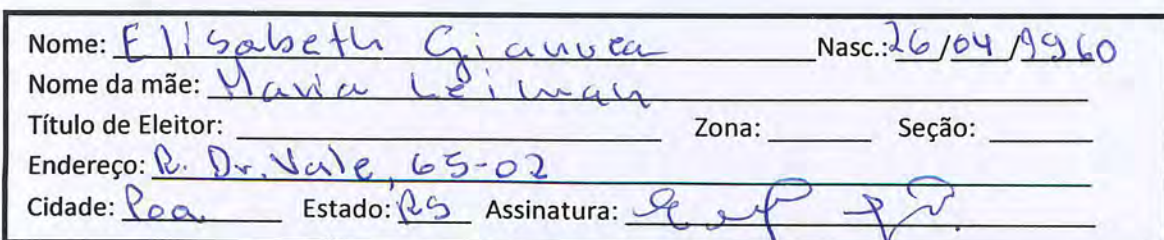 Nome: Elisabeth Nasc.: 26/04/1960
Nome da mãe: Maria Leiman
Título de Eleitor: Zona: Seção:
Endereço: R. Dr. Vale, 65-02
Cidade: Poa Estado: RS Assinatura: